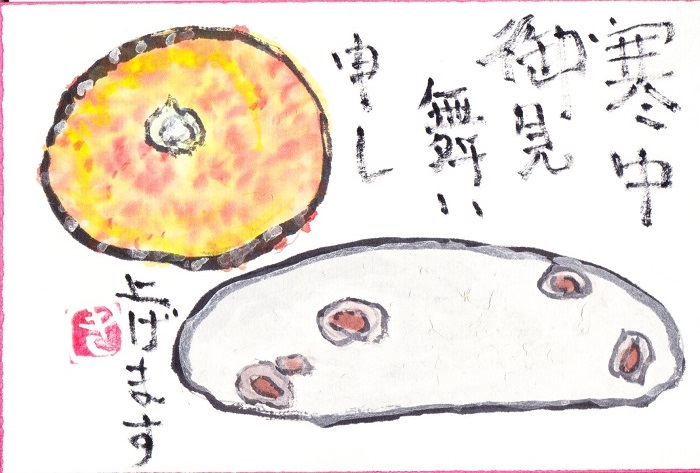 寒中
御見
舞い
申し
上げます
き